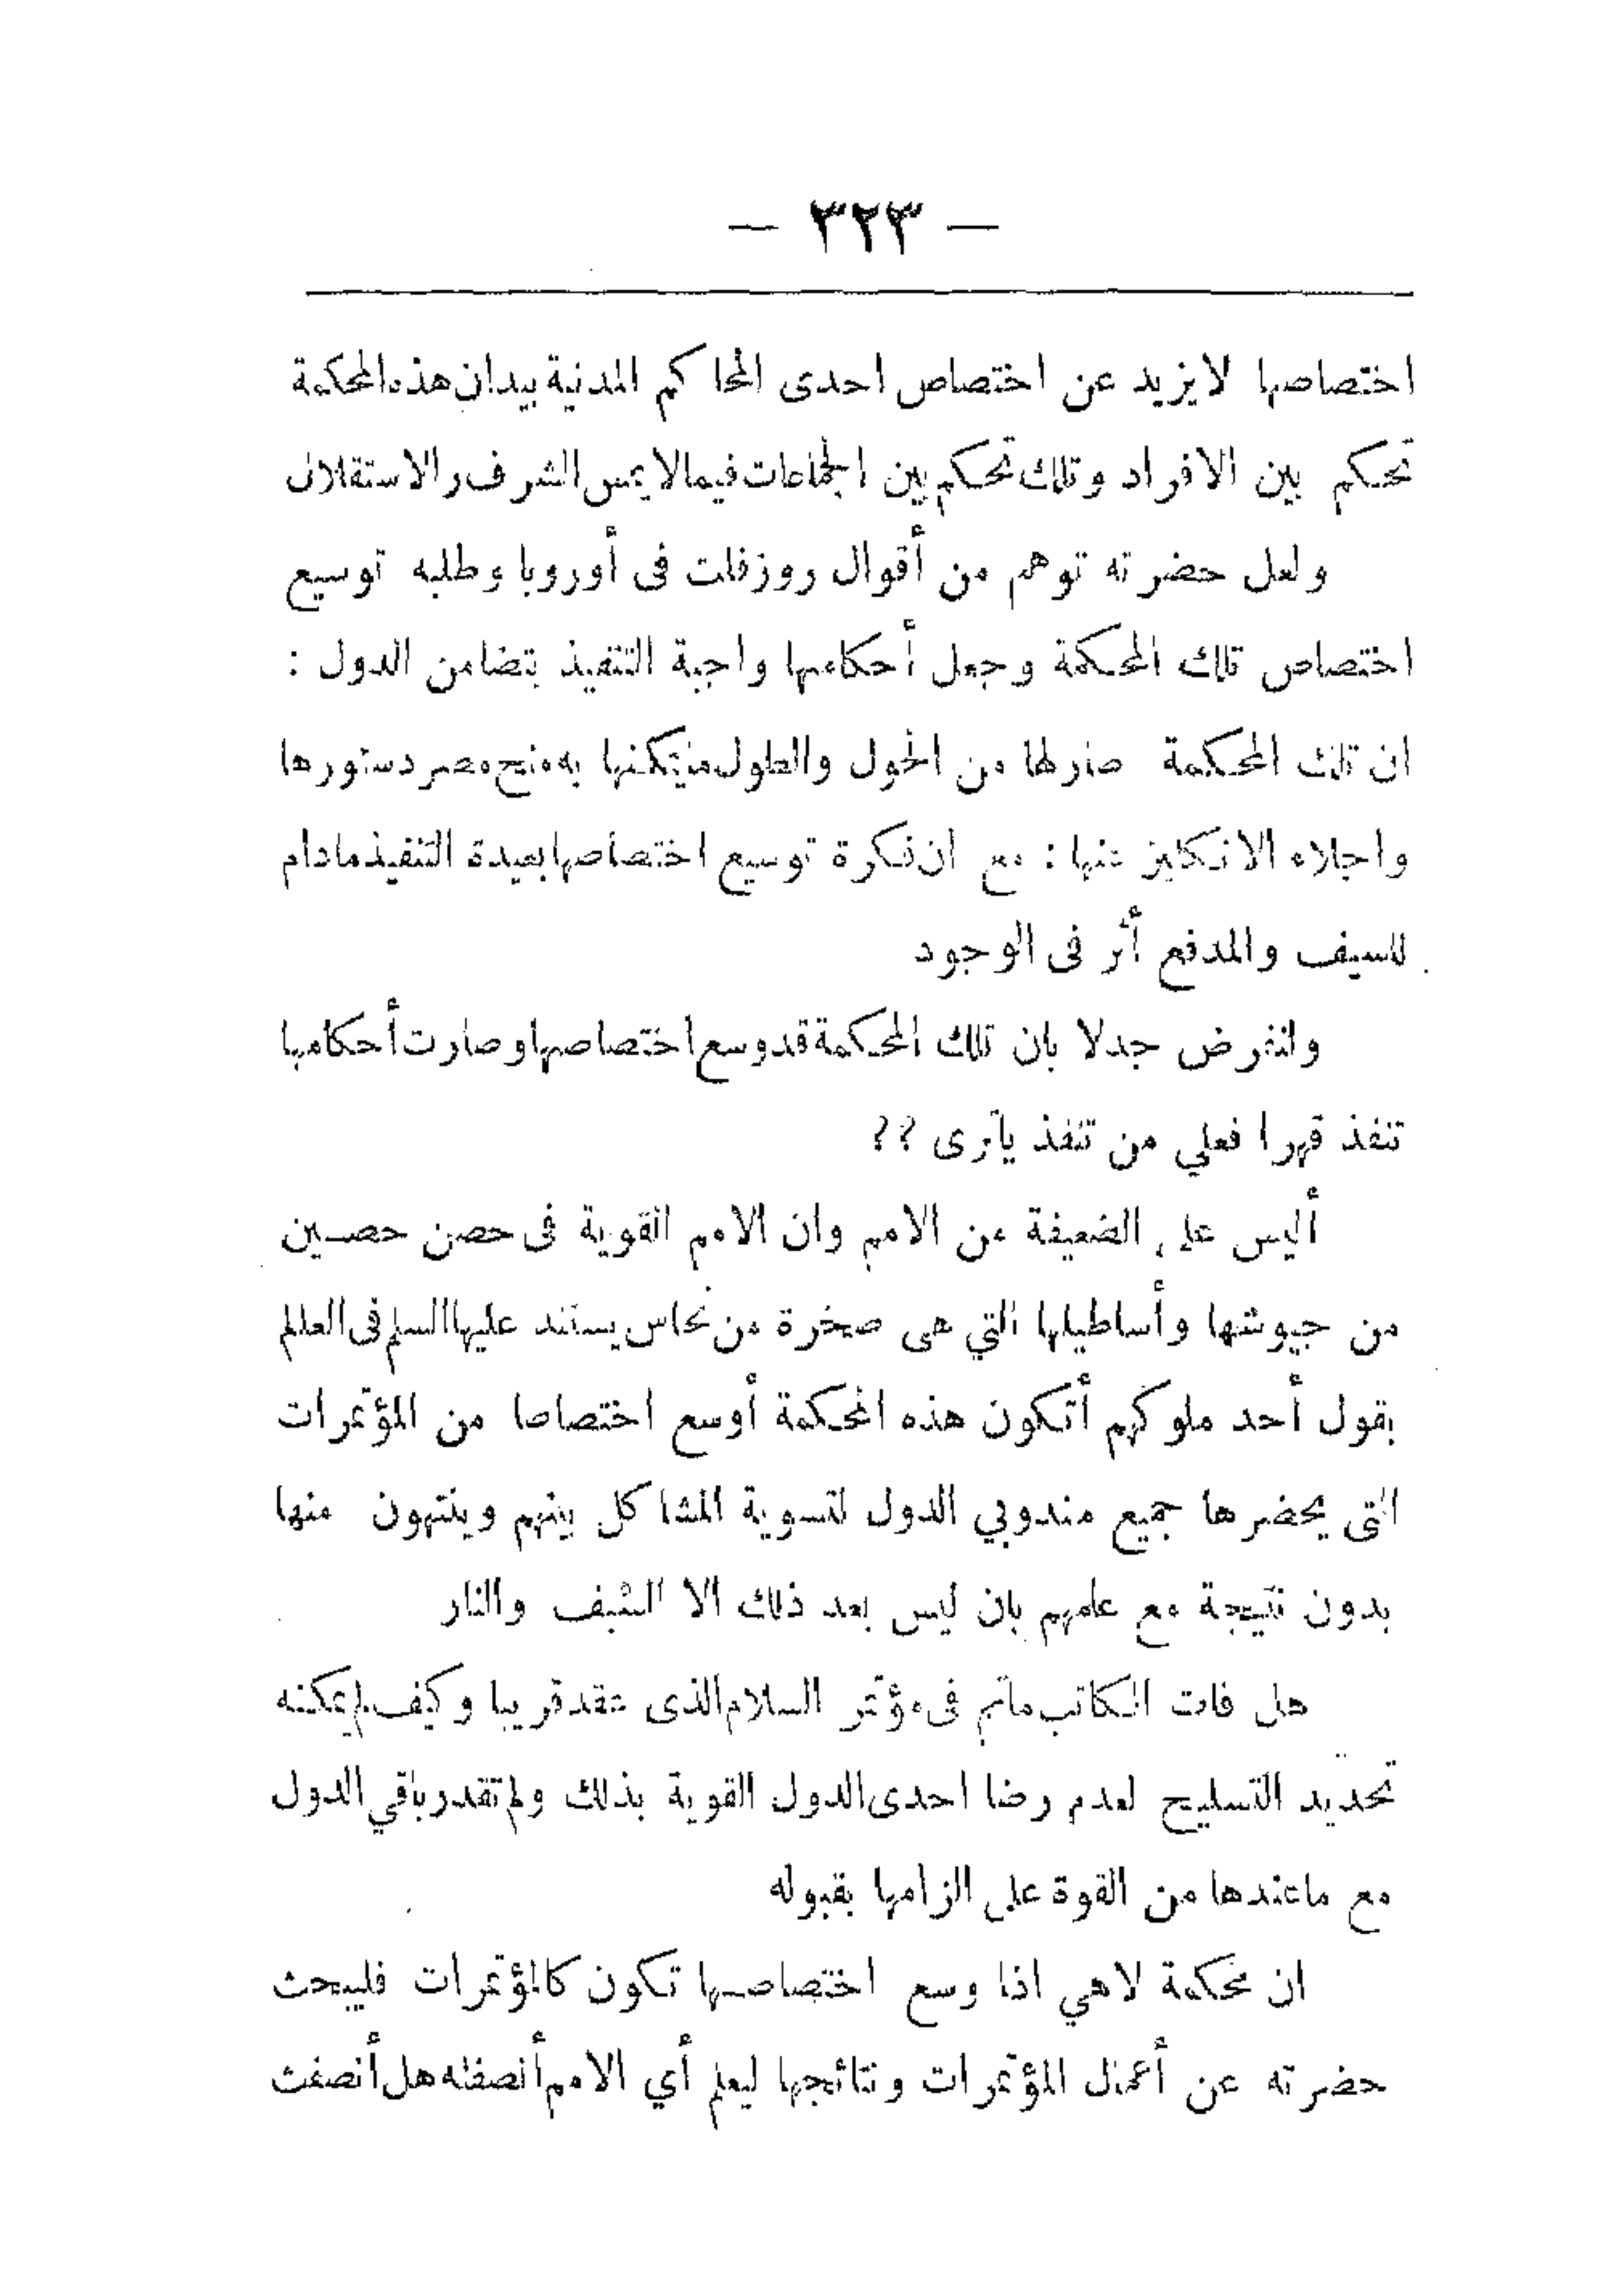 — ٣٢٣ —
اختصاصها لا يزيد عن اختصاص احدى المحاكم المدنية بيد ان هذه المحكمة
تحكم بين الافراد وتلك تحكم بين الجماعات فيما لا يمس الشرف والاستقلال
ولعل حضرته توهم من أقوال روزفلت فى أوروبا وطلبه توسيع
اختصاص تلك المحكمة وجعل أحكامها واجبة التنفيذ بتضامن الدول :
ان تلك المحكمة صار لها من الحول والطول ما يمكنها به منح مصر دستورها
واجلاء الانكليز عنها : مع ان فكرة توسيع اختصاصها بعيدة التنفيذ مادام
للسيف والمدفع أثر فى الوجود
ولنفرض جدلا بان تلك المحكمة قد وسع اختصاصها وصارت أحكامها
تنفذ قهرا فعلي من تنفذ ياترى ؟؟
أليس على الضعيفة من الامم وان الامم القوية فى حصن حصين
من جيوشها وأساطيلها التي هى صخرة من نحاس يستند عليها السلم فى العالم
بقول أحد ملوكهم أتكون هذه المحكمة أوسع اختصاصا من المؤتمرات
التى يحضرها جميع مندوبي الدول لتسوية المشاكل بينهم وينتهون منها
بدون نتيجة مع علمهم بان ليس بعد ذلك الا السيف والنار
هل فات الكاتب ماتم فى مؤتمر السلام الذى عقد قريبا وكيف لم يمكنه
تحديد التسليح لعدم رضا احدى الدول القوية بذلك ولم تقدر باقي الدول
مع ماعندها من القوة على الزامها بقبوله
ان محكمة لاهي اذا وسع اختصاصها تكون كالمؤتمرات فليبحث
حضرته عن أعمال المؤتمرات ونتائجها ليعلم أي الامم أنصفته هل أنصفت